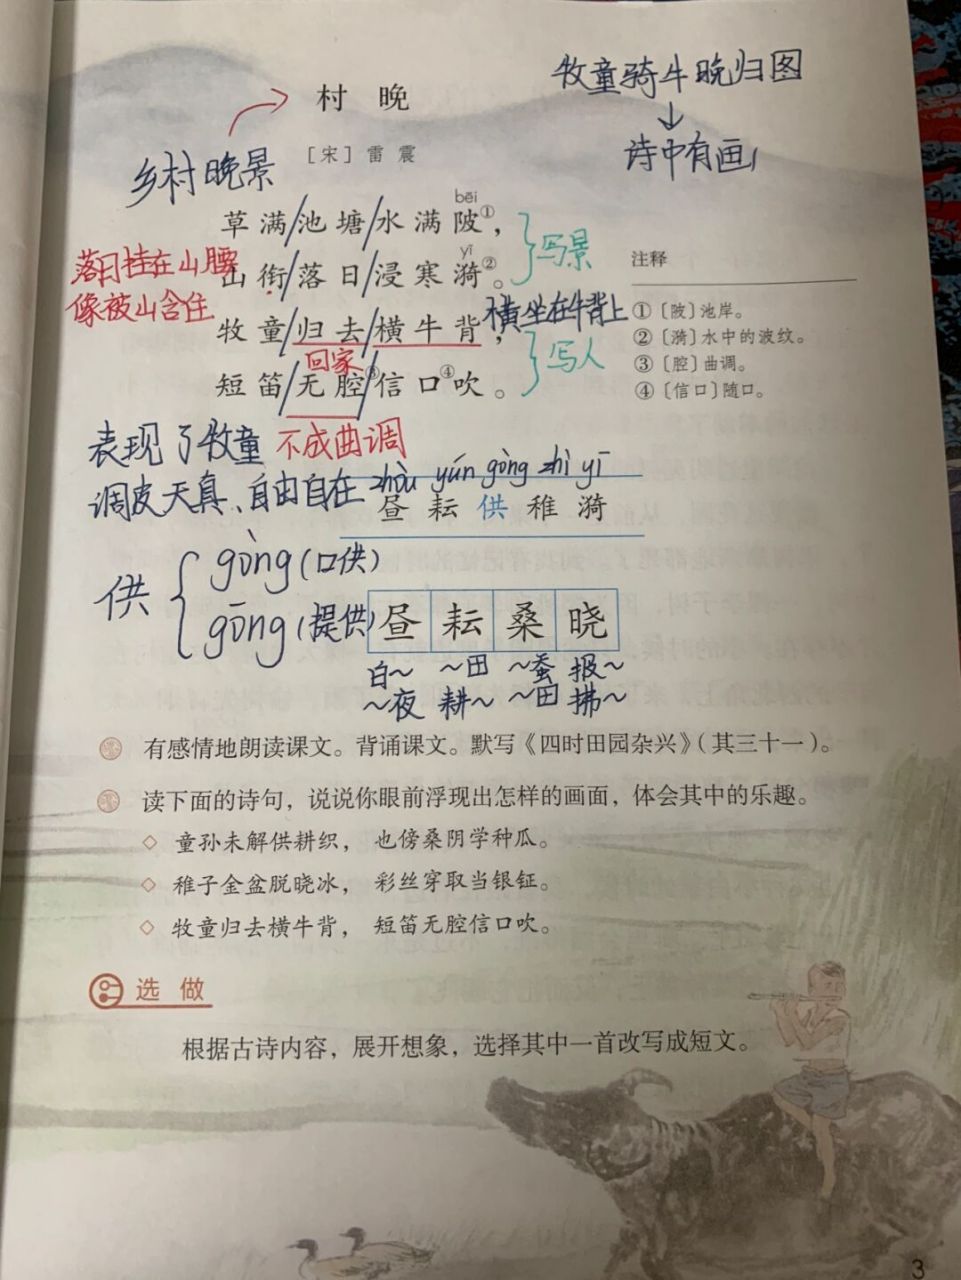 牧童骑牛晚归图
村 晚
↓
[宋] 雷 震
诗中有画
乡村晚景
bēi
草满/池塘/水满陂①，
写景
落日挂在山腰
yī
山衔/落日/浸寒漪②。
像被山含住
注释
牧童/归去/横牛背，
横坐在牛背上
①〔陂〕池岸。
回家
写人
②〔漪〕水中的波纹。
短笛/无腔③/信口④吹。
③〔腔〕曲调。
④〔信口〕随口。
表现了牧童
不成曲调
调皮天真、自由自在
zhòu yún gòng zhì yī
昼 耘 供 稚 漪
供 { gòng(口供)
gōng(提供)
昼 耘 桑 晓
白～ ～田 ～蚕 报～
～夜 耕～ ～田 拂～
有感情地朗读课文。背诵课文。默写《四时田园杂兴》(其三十一)。
读下面的诗句，说说你眼前浮现出怎样的画面，体会其中的乐趣。
◇ 童孙未解供耕织，也傍桑阴学种瓜。
◇ 稚子金盆脱晓冰，彩丝穿取当银钲。
◇ 牧童归去横牛背，短笛无腔信口吹。
选 做
根据古诗内容，展开想象，选择其中一首改写成短文。
3